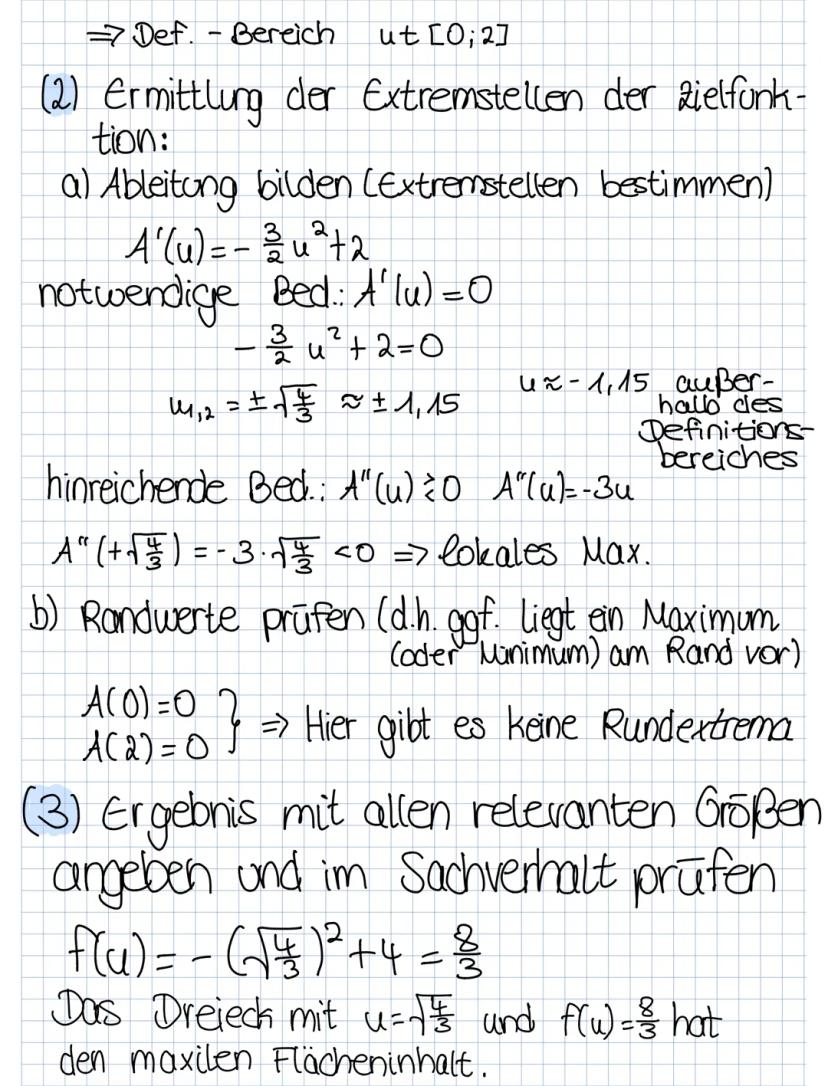 ⇒ Def. - Bereich u ε [0;2]
(2) Ermittlung der Extremstellen der Zielfunk-
tion:
a) Ableitung bilden (Extremstellen bestimmen)
A'(u) = - 3/2 u² + 2
notwendige Bed.: A'(u) = 0
- 3/2 u² + 2 = 0
u₁,₂ = ± √(4/3) ≈ ± 1,15 u ≈ - 1,15 außer-
halb des
Definitions-
bereiches
hinreichende Bed.: A''(u) ≷ 0 A''(u) = -3u
A''(+√(4/3)) = - 3 · √(4/3) < 0 ⇒ lokales Max.
b) Randwerte prüfen (d.h. ggf. liegt ein Maximum
(oder Minimum) am Rand vor)
A(0) = 0
A(2) = 0 } ⇒ Hier gibt es keine Rundextrema
(3) Ergebnis mit allen relevanten Größen
angeben und im Sachverhalt prüfen
f(u) = - (√(4/3))² + 4 = 8/3
Das Dreieck mit u = √(4/3) und f(u) = 8/3 hat
den maxilen Flächeninhalt.